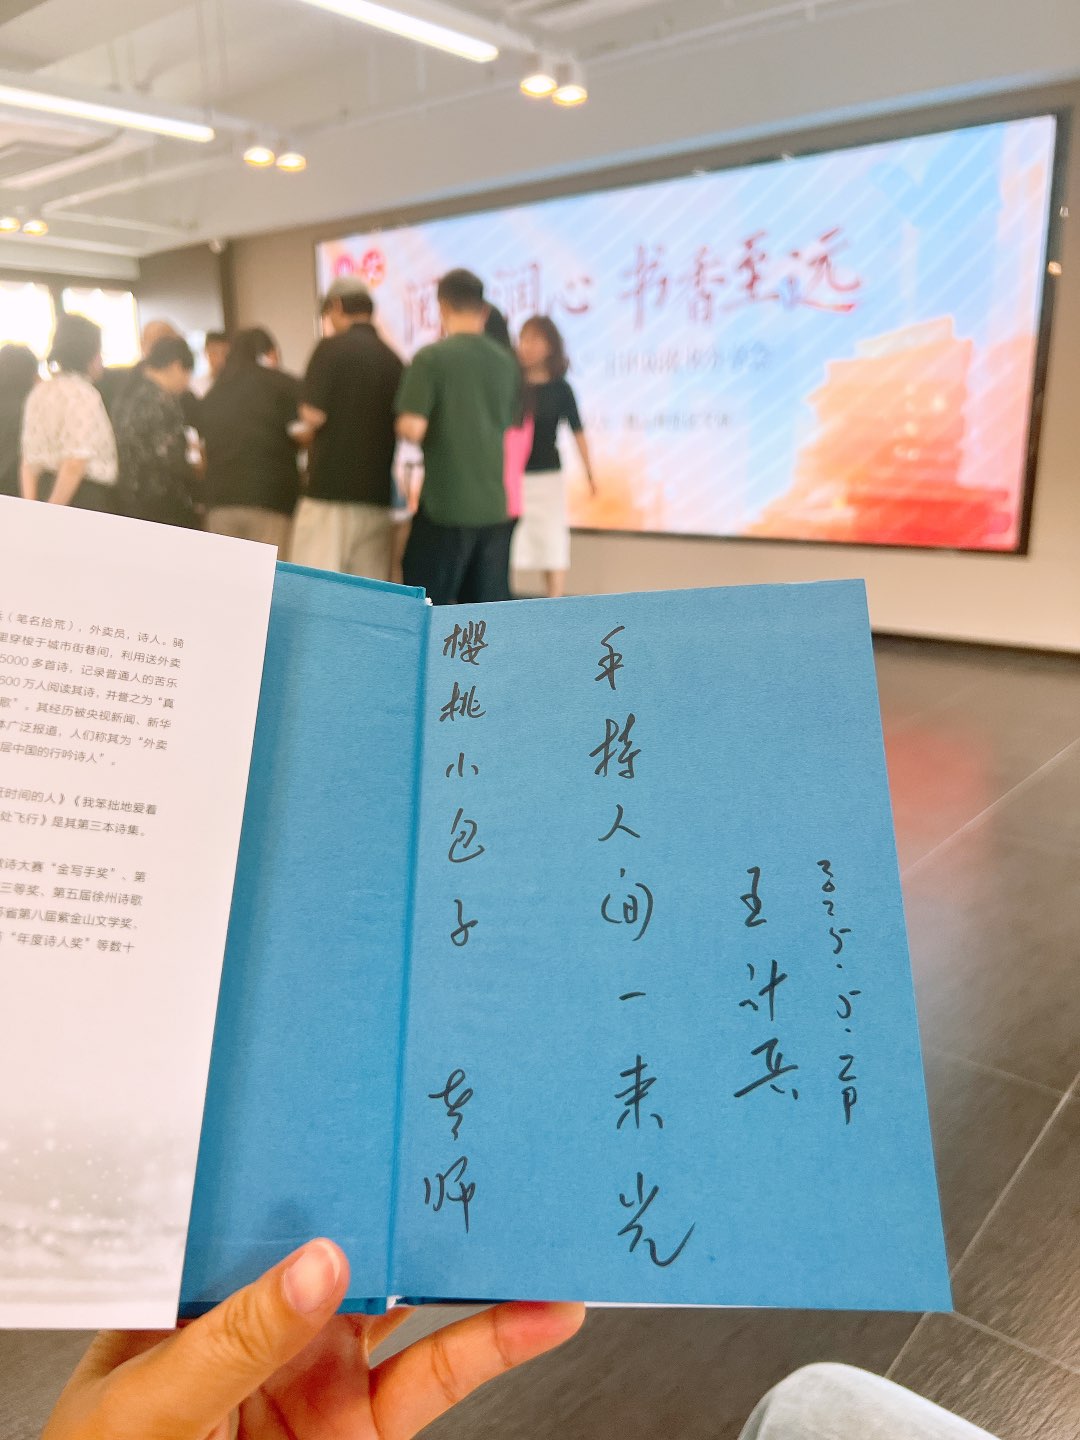 阅 润心 书香至远
（笔名拾荒），外卖员，诗人。骑
里穿梭于城市街巷间，利用送外卖
5000多首诗，记录普通人的苦乐
600万人阅读其诗，并誉之为“真
歌”。其经历被央视新闻、新华
体广泛报道，人们称其为“外卖
层中国的行吟诗人”。
时间的人》《我笨拙地爱着
处飞行》是其第三本诗集。
诗大赛“金写手奖”、第
三等奖、第五届徐州诗歌
省第八届紫金山文学奖、
“年度诗人奖”等数十
樱桃小包子 老师
手持人间一束光
王计兵
2025.5.24